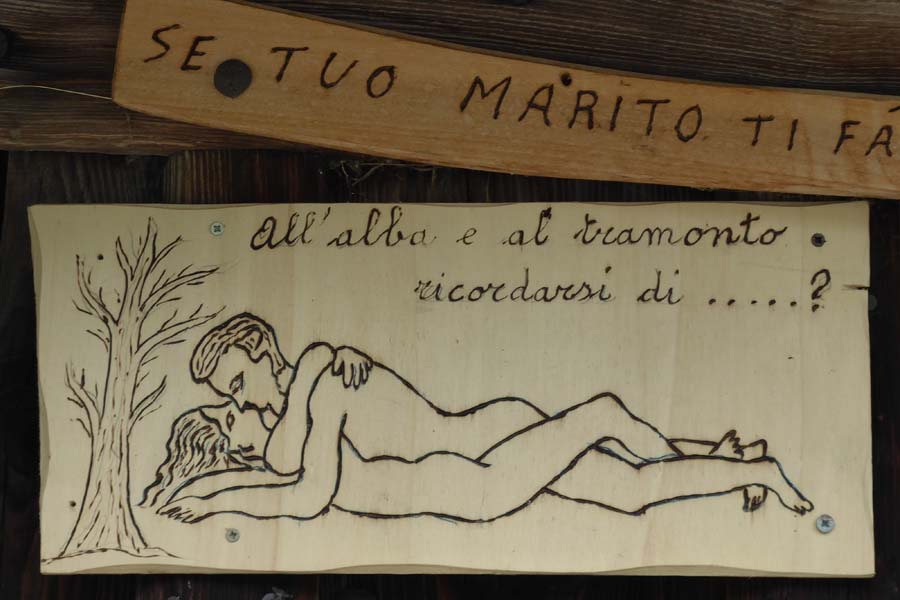 SE TUO MARITO TI FÁ
All' alba e al tramonto
ricordarsi di .....?